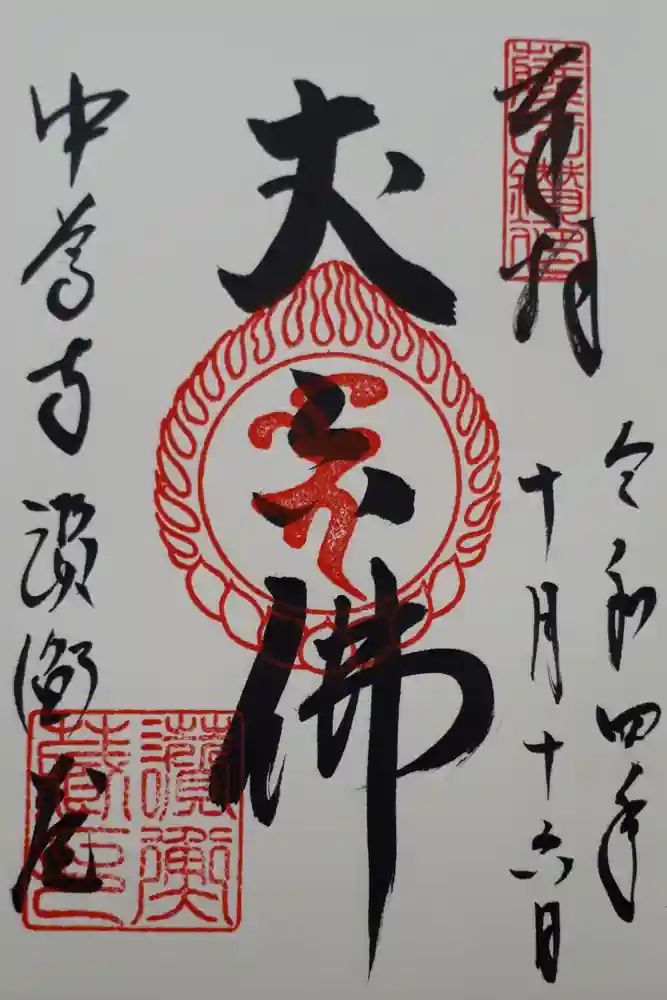 奉拝
令和四年
十月十六日
丈六佛
中尊寺 讃衡蔵
讃衡蔵印